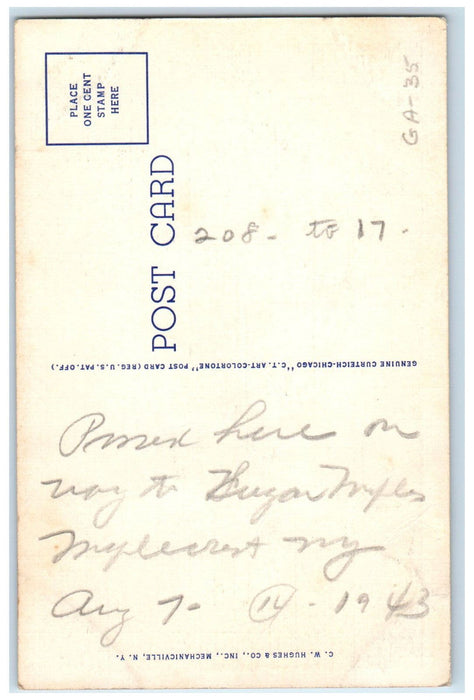 PLACE
ONE CENT
STAMP
HERE
GA-35
POST CARD
208 - to 17 -
GENUINE CURTEICH-CHICAGO "C.T. ART-COLORTONE" POST CARD (REG. U.S. PAT. OFF.)
Passed here on
way to Sugar Maples
Maplecrest NY
Aug 7 - (14) - 1943
C. W. HUGHES & CO., INC., MECHANICVILLE, N. Y.